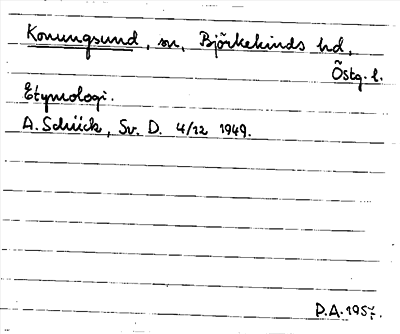 Konungsund, sn, Björkekinds hd,
Östg. l.
Etymologi.
A. Schück, Sv. D. 4/12 1949.
D.A. 1957.